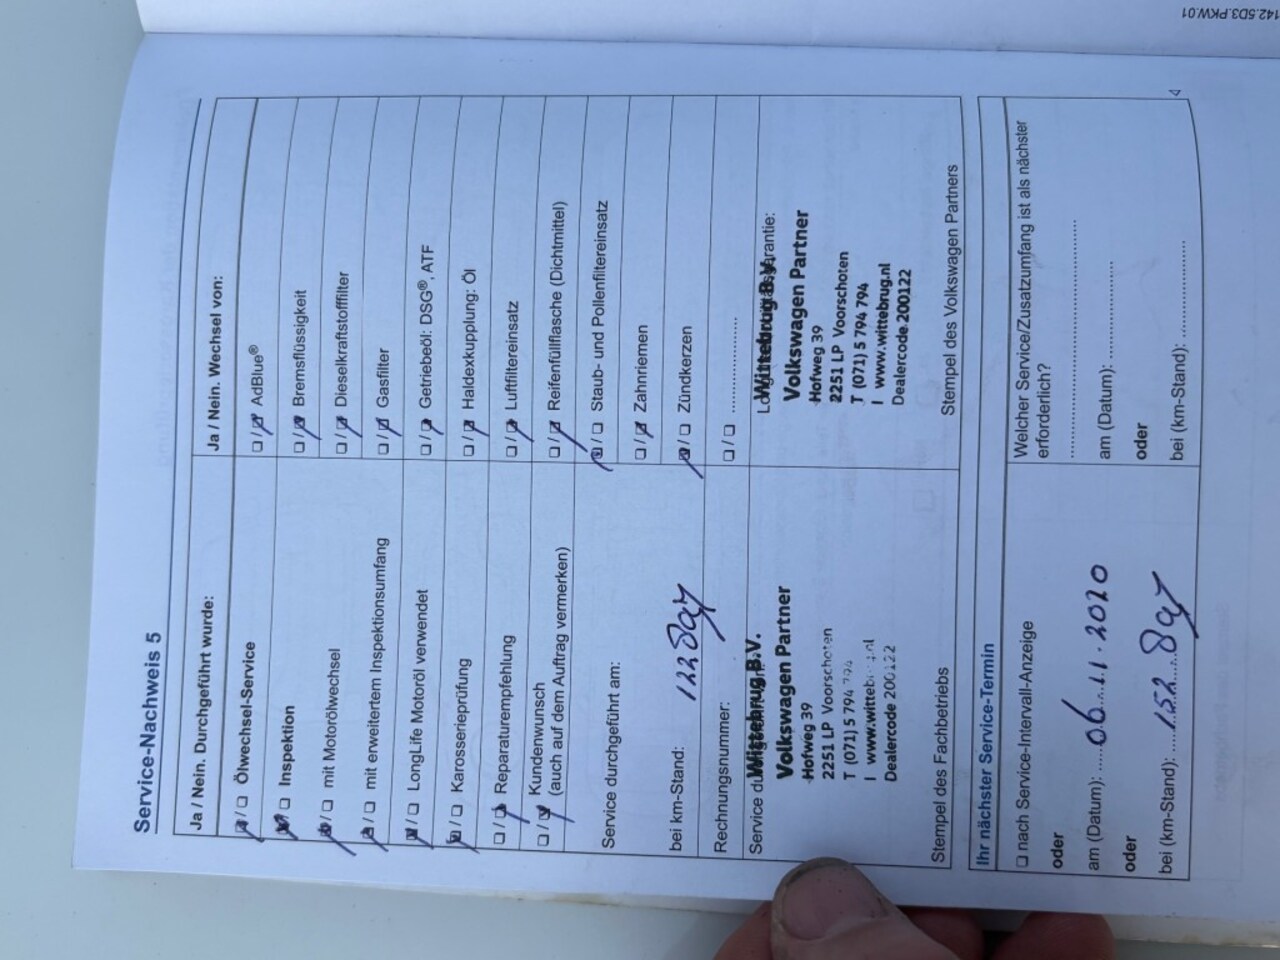 142.5D3.PKW.01
Service-Nachweis 5
Ja / Nein. Durchgeführt wurde:
☒ / ☐ Ölwechsel-Service
☒ / ☐ Inspektion
☒ / ☐ mit Motorölwechsel
☒ / ☐ mit erweitertem Inspektionsumfang
☒ / ☐ LongLife Motoröl verwendet
☒ / ☐ Karosserieprüfung
☐ / ☒ Reparaturempfehlung
☐ / ☒ Kundenwunsch
(auch auf dem Auftrag vermerken)
Service durchgeführt am:
bei km-Stand: 122807
Rechnungsnummer:
Wittebrug B.V.
Volkswagen Partner
Hofweg 39
2251 LP Voorschoten
T (071) 5 794 794
I www.wittebrug.nl
Dealercode 200122
Stempel des Fachbetriebs
Ja / Nein. Wechsel von:
☐ / ☒ AdBlue®
☐ / ☒ Bremsflüssigkeit
☐ / ☒ Dieselkraftstofffilter
☐ / ☒ Gasfilter
☐ / ☒ Getriebeöl: DSG®, ATF
☐ / ☒ Haldexkupplung: Öl
☐ / ☒ Luftfiltereinsatz
☐ / ☒ Reifenfüllflasche (Dichtmittel)
☒ / ☐ Staub- und Pollenfiltereinsatz
☐ / ☒ Zahnriemen
☒ / ☐ Zündkerzen
☐ / ☐ ................
Wittebrug B.V.
Volkswagen Partner
Hofweg 39
2251 LP Voorschoten
T (071) 5 794 794
I www.wittebrug.nl
Dealercode 200122
Stempel des Volkswagen Partners
Ihr nächster Service-Termin
☐ nach Service-Intervall-Anzeige
oder
am (Datum): 06.11.2020
oder
bei (km-Stand): 152.807
Welcher Service/Zusatzumfang ist als nächster
erforderlich?
am (Datum): ................
oder
bei (km-Stand): ................
4